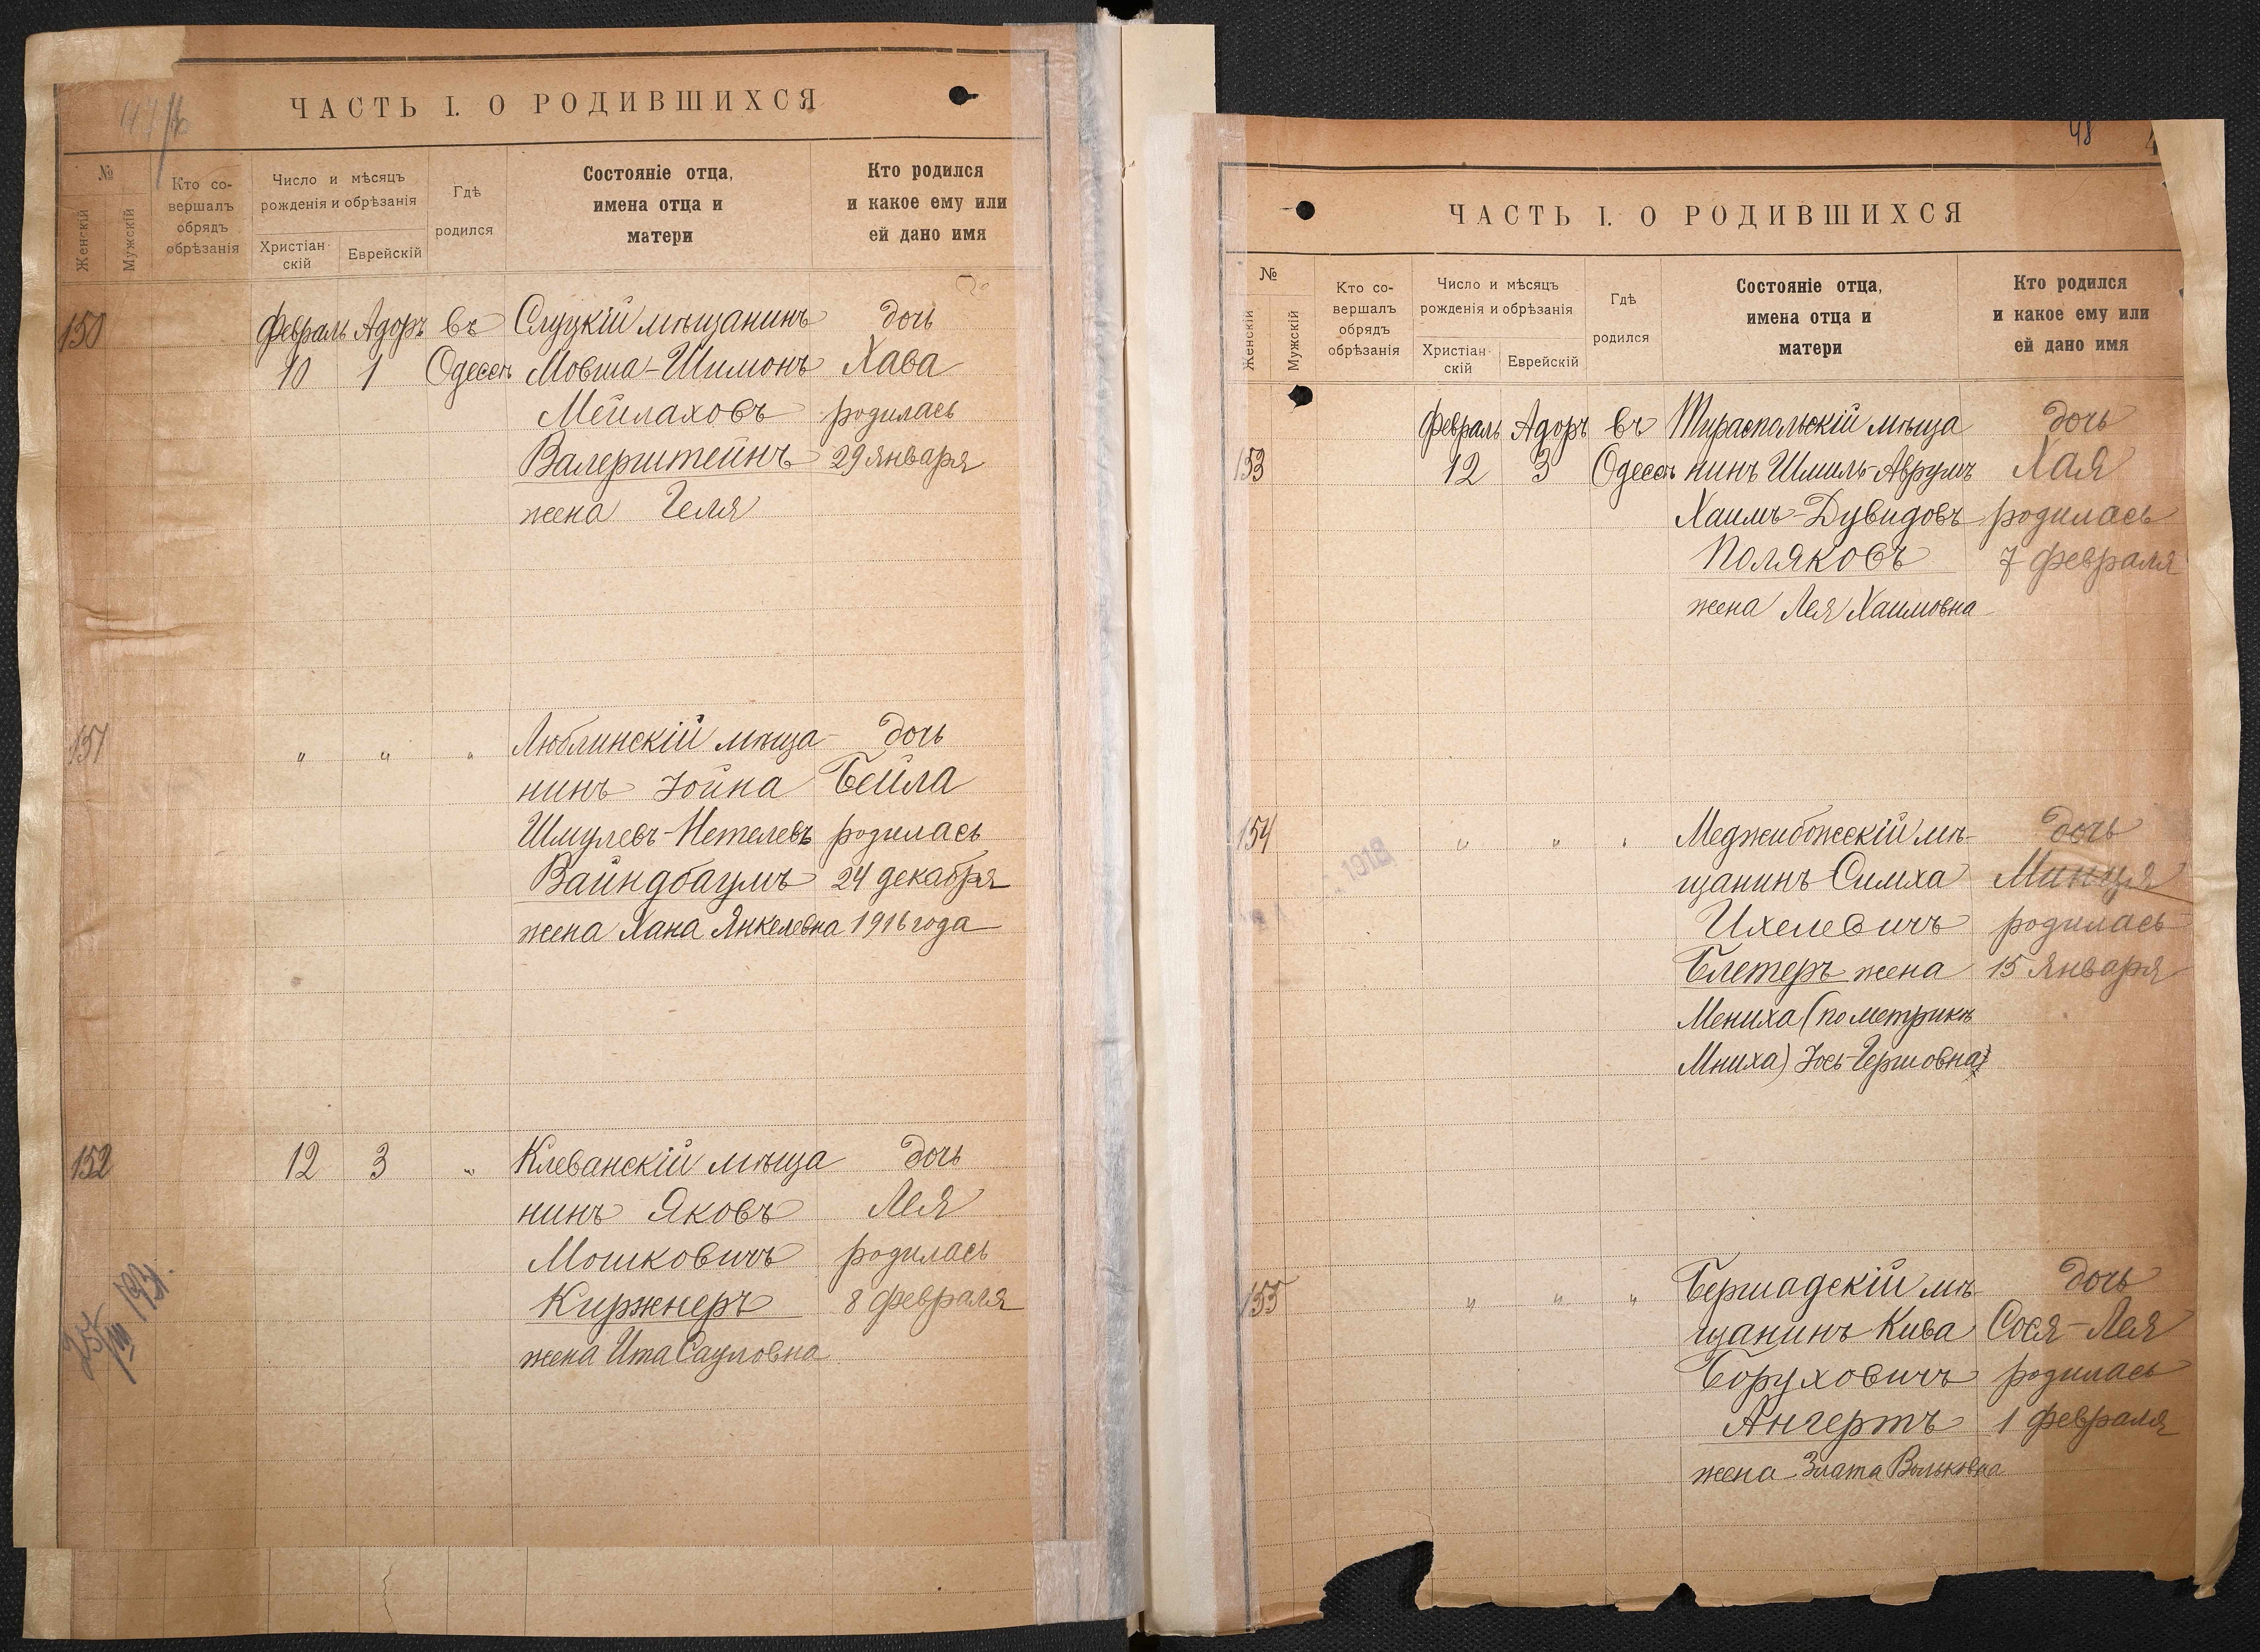 47/16
ЧАСТЬ I. О РОДИВШИХСЯ
№
Женскій
Мужскій
Кто со-
вершалъ
обрядъ
обрѣзанія
Число и мѣсяцъ
рожденія и обрѣзанія
Христіан-
скій
Еврейскій
Гдѣ
родился
Состояніе отца,
имена отца и
матери
Кто родился
и какое ему или
ей дано имя
150 Февраль Адоръ въ Слуцкій мѣщанинъ дочь
10 1 Одессѣ Мовша-Шимонъ Хава
Мейлаховъ родилась
Валерштейнъ 29 января
жена Геля
151 " " " Люблинскій мѣща- дочь
нинъ Іойна Бейла
Шмулевъ-Нетелевъ родилась
Вайндбаумъ 24 декабря
жена Хана Янкелевна 1916 года
152 12 3 " Клеванскій мѣща дочь
нинъ Яковъ Лея
Мошковичъ родилась
Киржнеръ 8 февраля
жена Ита Сауловна
48
ЧАСТЬ I. О РОДИВШИХСЯ
№
Женскій
Мужскій
Кто со-
вершалъ
обрядъ
обрѣзанія
Число и мѣсяцъ
рожденія и обрѣзанія
Христіан-
скій
Еврейскій
Гдѣ
родился
Состояніе отца,
имена отца и
матери
Кто родился
и какое ему или
ей дано имя
Февраль Адоръ въ Тираспольскій мѣща дочь
153 12 3 Одессѣ нинъ Шмиль-Аврумъ Хая
Хаимъ-Дувидовъ родилась
Поляковъ 7 февраля
жена Лея Хаимовна
154 " " " Меджибожскій мѣ- дочь
щанинъ Симха Минця
Ихелевичъ родилась
Блетеръ жена 15 января
Мениха (по метрикѣ
Мниха) Іось-Гершовна
155 " " " Бершадскій мѣ- дочь
щанинъ Кива Сося-Лея
Боруховичъ родилась
Ангертъ 1 февраля
жена Злата Вольковна